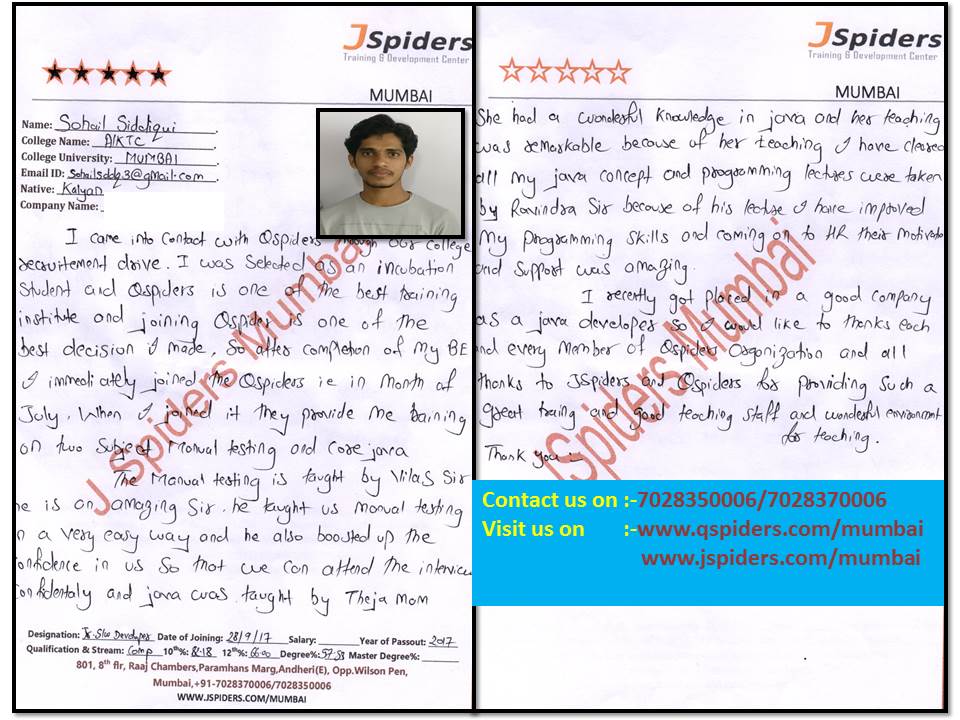 JSpiders
Training & Development Center
MUMBAI
Name: Sohail Siddiqui
College Name: AIKTC
College University: MUMBAI
Email ID: Sohailsddq3@gmail.com
Native: Kalyan
Company Name:
I came into contact with Qspiders through our college
recruitement drive. I was selected as an incubation
Student and Qspiders is one of the best training
institute and joining Qspider is one of the
best decision I made, So after completion of my BE
I immediately joined the Qspiders i.e in month of
July. When I joined it they provide me training
on two Subject Manual testing and core java
The Manual testing is taught by Vilas Sir
he is an amazing Sir. he taught us manual testing
in a very easy way and he also boosted up the
confidence in us So that we can attend the interview
confidentaly and java was taught by Theja Mam
Designation: Jr. S/w Developer Date of Joining: 28/9/17 Salary: Year of Passout: 2017
Qualification & Stream: Comp 10th%: 82.18 12th%: 66.00 Degree%: 57.53 Master Degree%:
801, 8th flr, Raaj Chambers,Paramhans Marg,Andheri(E), Opp.Wilson Pen,
Mumbai,+91-7028370006/7028350006
WWW.JSPIDERS.COM/MUMBAI
J Spiders Mumbai
JSpiders
Training & Development Center
MUMBAI
She had a wonderful knowledge in java and her teaching
was remarkable because of her teaching I have cleared
all my java concept and programming lectures were taken
by Ravindra Sir because of his lecture I have improved
my programming skills and coming on to HR their motivation
and support was amazing.
I recently got placed in a good company
as a java developer so I would like to thanks each
and every member of Qspiders Organization and all
thanks to JSpiders and Qspiders for providing such a
great traing and good teaching staff and wonderful environment
for teaching.
Thank you :-
JSpiders Mumbai
Contact us on :-7028350006/7028370006
Visit us on :-www.qspiders.com/mumbai
www.jspiders.com/mumbai